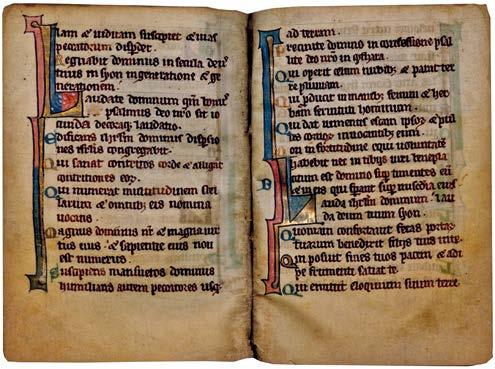 pillam & uiduam suscipiet & uias
peccatorum disperdet.
Regnabit dominus in secula deus
tuus in syon in generatione & ge
nerationem.
Laudate dominum qm bonus
psalmus deo nro sit io
cunda decoraq; laudatio.
Edificans dominus dispersio
nes congregabit.
Qui sanat contritos corde & alligat
contritiones eor.
Qui numerat multitudinem stel
larum & omnib; eis nomina
uocans
Magnus dominus nr & magna uir
tus eius & sapientie eius non
est numerus.
Suscipiens mansuetos dominus
humilians autem peccatores usq;
ad terram.
Precinite domino in confessione psal
lite deo nro in cythara.
Qui operit celum nubib; & parat ter
re pluuiam.
Qui producit in montib; fenum & her
bam seruituti hominum.
Qui dat iumentis escam ipsor & pul
lis coruor inuocantib; eum.
Non in fortitudine equi uoluntate
habebit nec in tibijs uiri beneplaci
tum est domino sup timentes eum
& in eis qui sperant sup eius
Lauda dominum lau
da deum tuum syon.
Quoniam confortauit seras portar
tuarum benedixit filijs tuis in te.
Qui posuit fines tuos pacem & adi
pe frumenti satiat te.
Qui emittit eloquium suum terre.